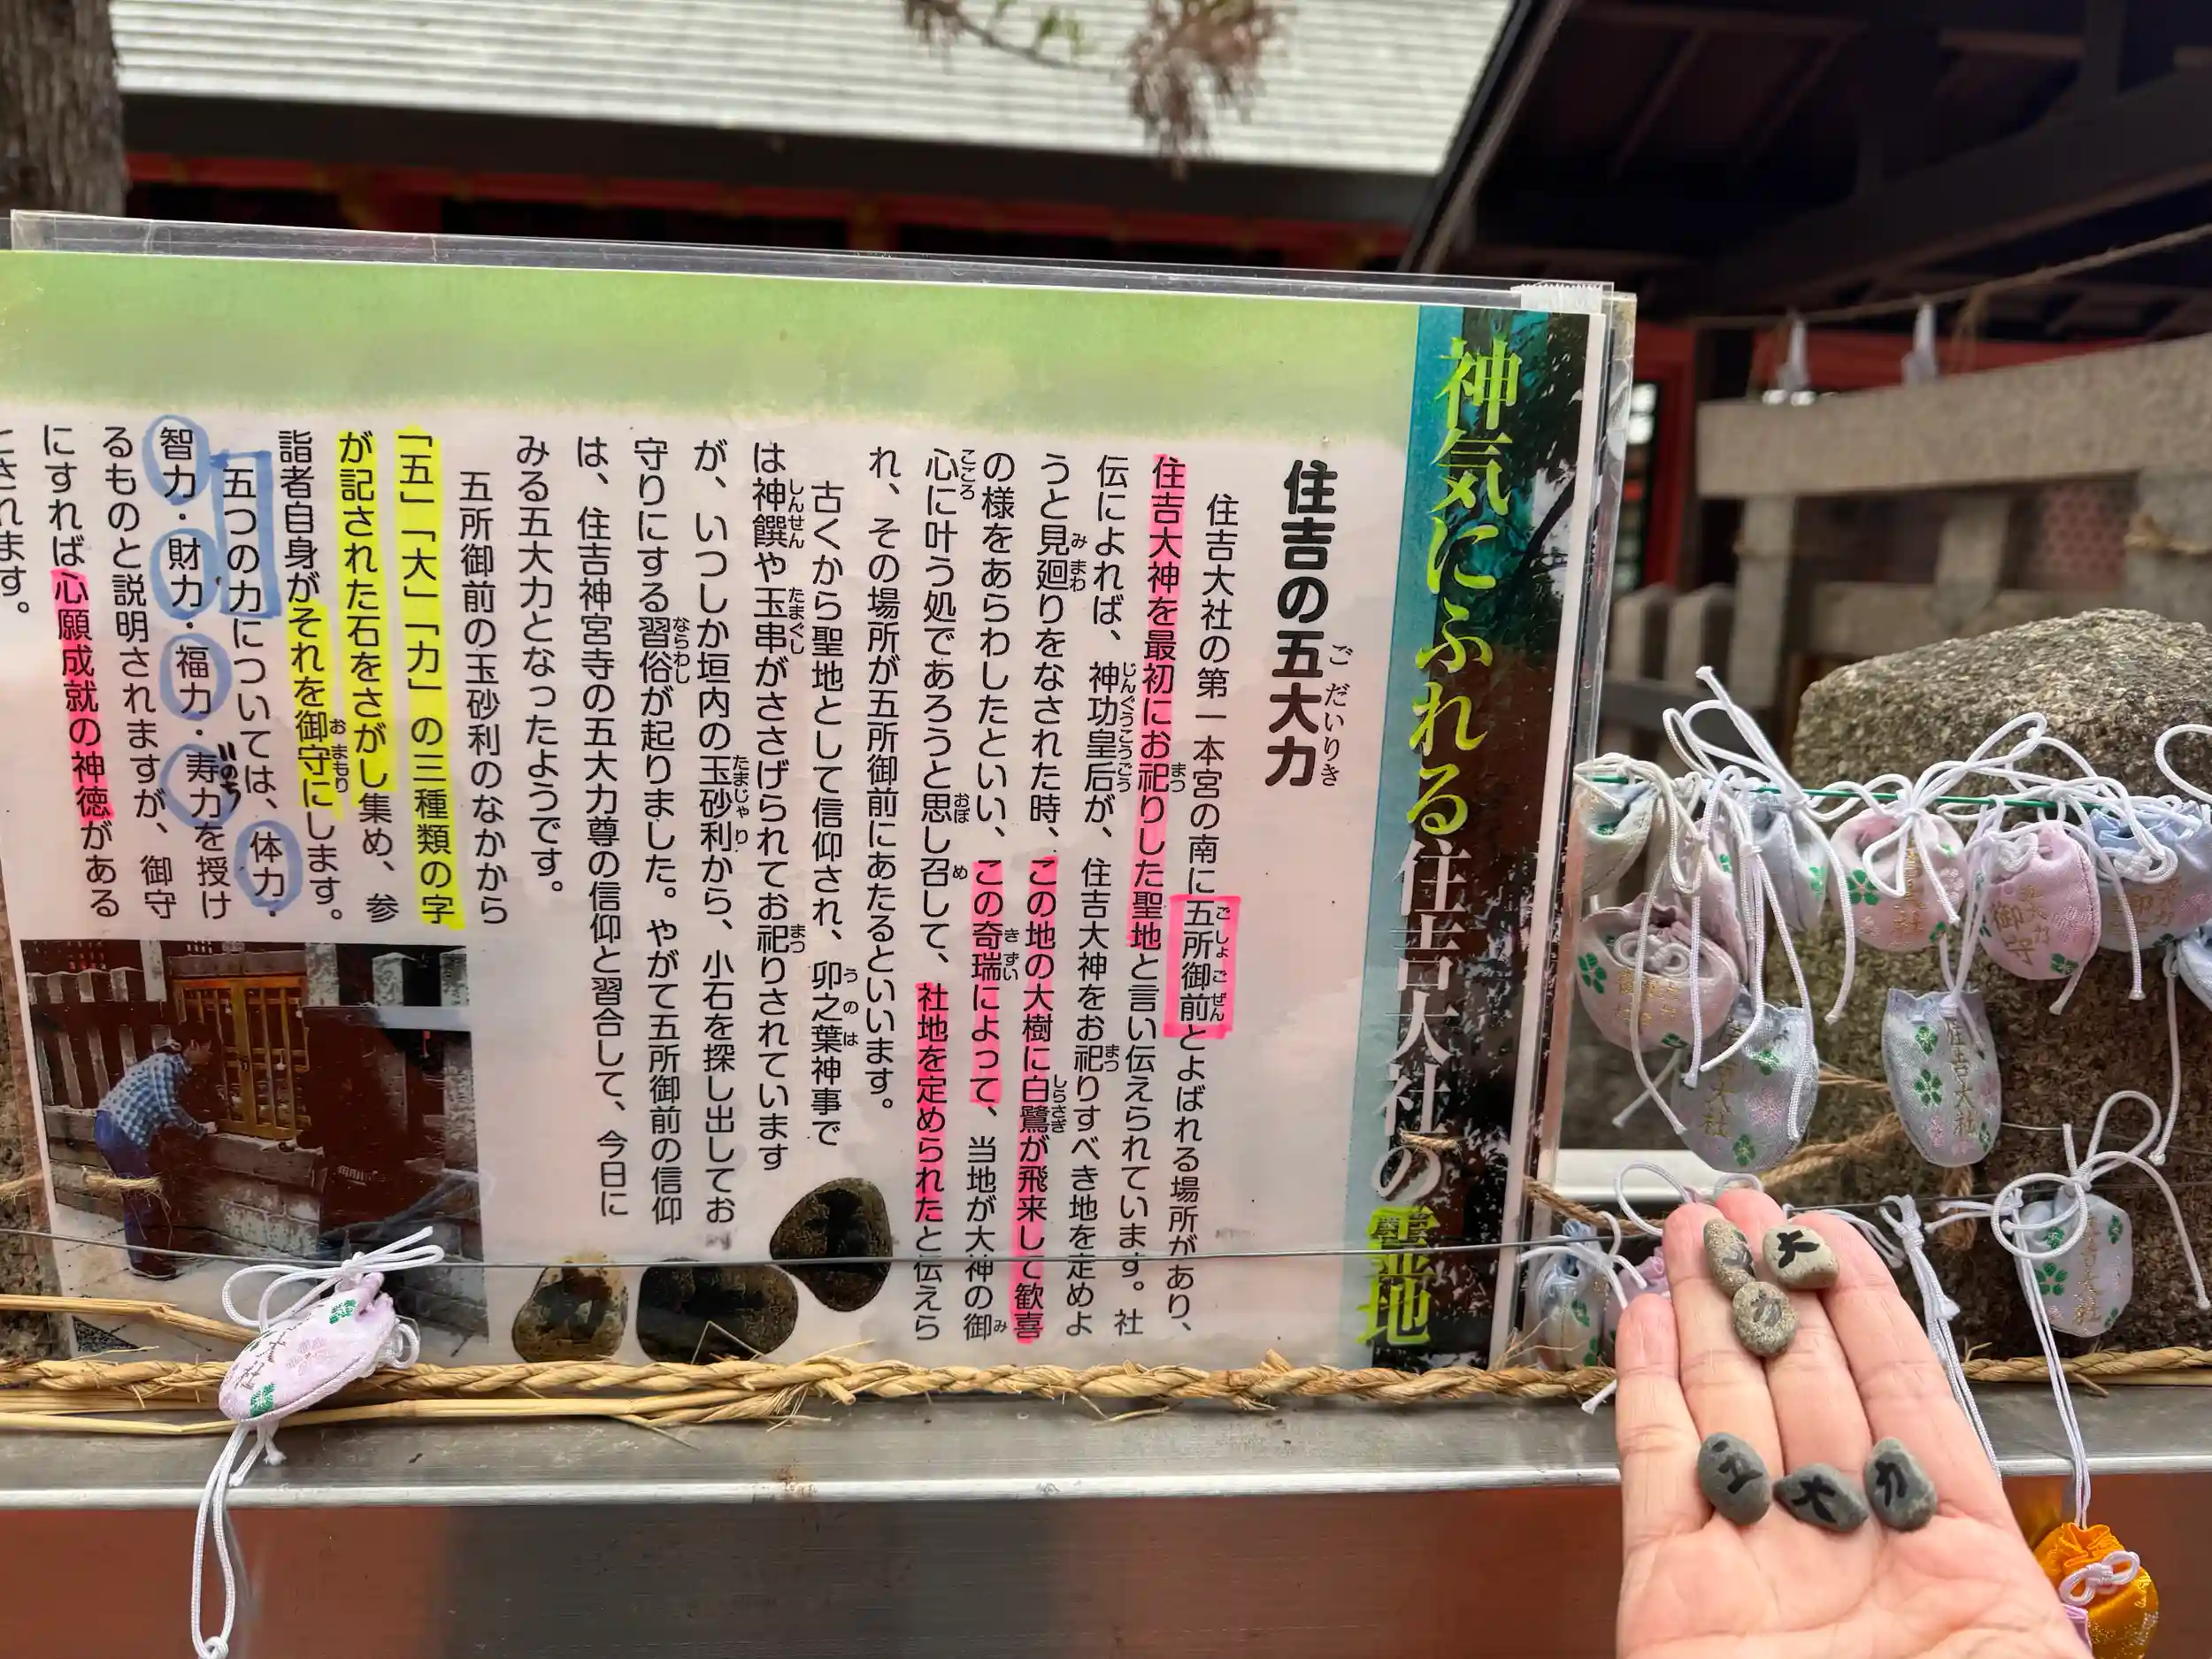 神気にふれる住吉大社の霊地
住吉の五大力
ごだいりき
住吉大社の第一本宮の南に五所御前とよばれる場所があり、
ごしょごぜん
住吉大神を最初にお祀りした聖地と言い伝えられています。社
まつ
伝によれば、神功皇后が、住吉大神をお祀りすべき地を定めよ
じんぐうこうごう
まつ
うと見廻りをなされた時、この地の大樹に白鷺が飛来して歓喜
みまわ
しらさぎ
の様をあらわしたといい、この奇瑞によって、当地が大神の御
きずい
み
心に叶う処であろうと思し召して、社地を定められたと伝えら
こころ
おぼ
め
れ、その場所が五所御前にあたるといいます。
古くから聖地として信仰され、卯之葉神事で
うのは
は神饌や玉串がささげられてお祀りされています
しんせん
たまぐし
まつ
が、いつしか垣内の玉砂利から、小石を探し出してお
たまじゃり
守りにする習俗が起りました。やがて五所御前の信仰
ならわし
は、住吉神宮寺の五大力尊の信仰と習合して、今日に
みる五大力となったようです。
五所御前の玉砂利のなかから
「五」「大」「力」の三種類の字
が記された石をさがし集め、参
詣者自身がそれを御守にします。
おまもり
五つの力については、体力・
智力・財力・福力・寿力を授け
いのち
るものと説明されますが、御守
にすれば心願成就の神徳がある
とされます。
大
力
五
大
力
御守
住吉大社
大社